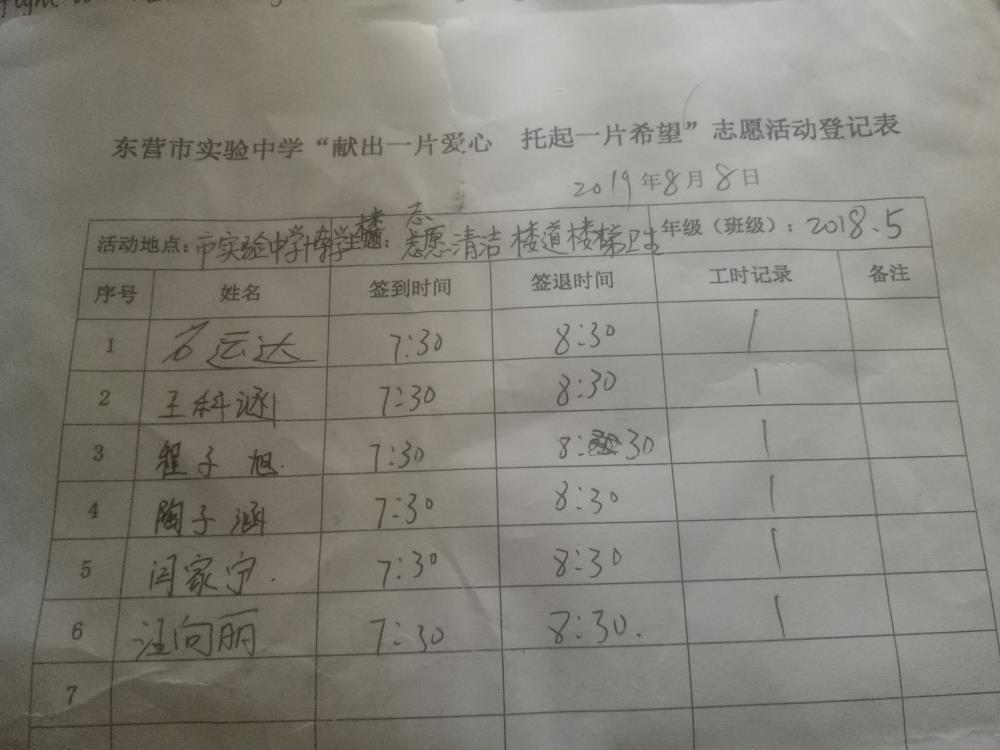 东营市实验中学“献出一片爱心 托起一片希望”志愿活动登记表
2019年8月8日
活动地点：市实验中学教学楼 主题：志愿清洁楼道楼梯卫生 年级（班级）：2018.5
序号 姓名 签到时间 签退时间 工时记录 备注
1 石运达 7:30 8:30 1
2 王科涵 7:30 8:30 1
3 程子旭 7:30 8:30 1
4 陶子涵 7:30 8:30 1
5 闫家宁 7:30 8:30 1
6 汪向丽 7:30 8:30 1
7